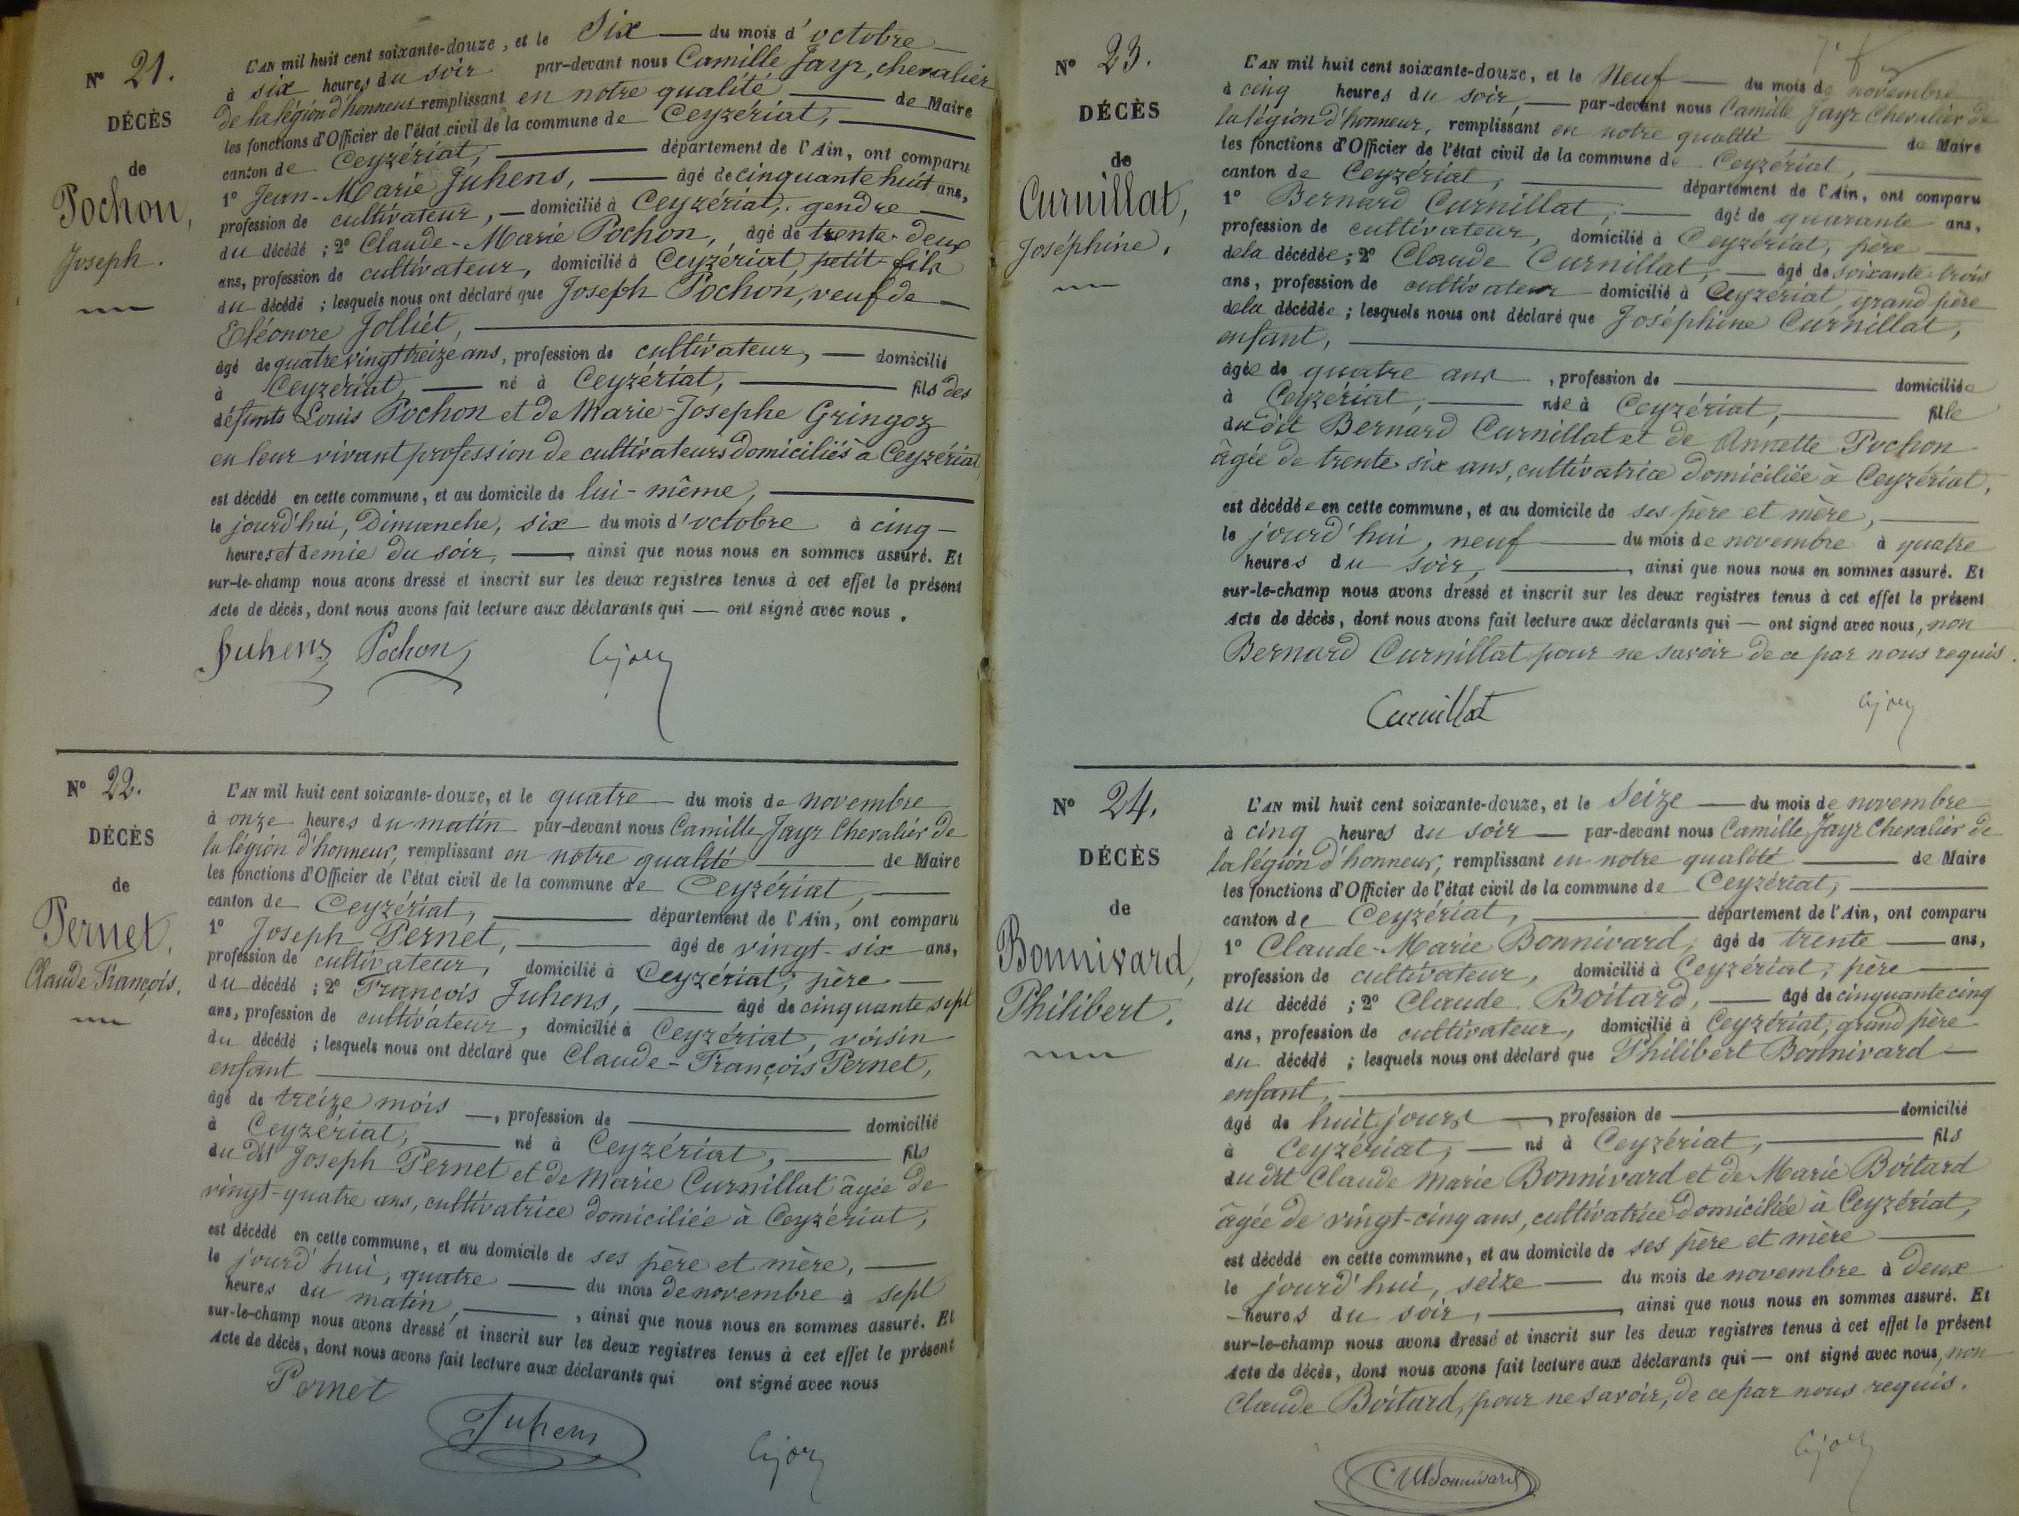 N° 21.
DÉCÈS
de
Pochon,
Joseph.
L'AN mil huit cent soixante-douze, et le Six — du mois d'octobre —
à six heures du soir par-devant nous Camille Jayr, chevalier
de la légion d'honneur remplissant en notre qualité — de Maire
les fonctions d'Officier de l'état civil de la commune de Ceyzériat, —
canton de Ceyzériat, — département de l'Ain, ont comparu
1° Jean-Marie Juhens, — âgé de cinquante huit ans,
profession de cultivateur, — domicilié à Ceyzériat, gendre —
du décédé ; 2° Claude-Marie Pochon, âgé de trente-deux
ans, profession de cultivateur, domicilié à Ceyzériat, petit-fils
du décédé ; lesquels nous ont déclaré que Joseph Pochon, veuf de —
Eléonore Jolliet, —
âgé de quatre vingt treize ans, profession de cultivateur, — domicilié
à Ceyzériat, — né à Ceyzériat, — fils des
défunts Louis Pochon et de Marie-Josephe Gringoz
en leur vivant profession de cultivateurs domiciliés à Ceyzériat
est décédé en cette commune, et au domicile de lui-même, —
le jourd'hui, Dimanche, six du mois d'octobre à cinq —
heures et demie du soir, — ainsi que nous nous en sommes assuré. Et
sur-le-champ nous avons dressé et inscrit sur les deux registres tenus à cet effet le présent
Acte de décès, dont nous avons fait lecture aux déclarants qui — ont signé avec nous.
Juhens Pochon
N° 22.
DÉCÈS
de
Pernet,
Claude François.
L'AN mil huit cent soixante-douze, et le quatre — du mois de novembre
à onze heures du matin par-devant nous Camille Jayr Chevalier de
la légion d'honneur, remplissant en notre qualité — de Maire
les fonctions d'Officier de l'état civil de la commune de Ceyzériat, —
canton de Ceyzériat, — département de l'Ain, ont comparu
1° Joseph Pernet, — âgé de vingt-six ans,
profession de cultivateur, domicilié à Ceyzériat, père —
du décédé ; 2° François Juhens, — âgé de cinquante sept
ans, profession de cultivateur, domicilié à Ceyzériat, voisin
du décédé ; lesquels nous ont déclaré que Claude-François Pernet,
enfant —
âgé de treize mois —, profession de — domicilié
à Ceyzériat, — né à Ceyzériat, — fils
du dit Joseph Pernet et de Marie Curnillat âgée de
vingt-quatre ans, cultivatrice domiciliée à Ceyzériat,
est décédé en cette commune, et au domicile de ses père et mère, —
le jourd'hui, quatre — du mois de novembre à sept
heures du matin, —, ainsi que nous nous en sommes assuré. Et
sur-le-champ nous avons dressé et inscrit sur les deux registres tenus à cet effet le présent
Acte de décès, dont nous avons fait lecture aux déclarants qui ont signé avec nous
Pernet
Juhens
N° 23.
DÉCÈS
de
Curnillat,
Joséphine.
L'AN mil huit cent soixante-douze, et le Neuf — du mois de novembre
à cinq heures du soir, — par-devant nous Camille Jayr Chevalier de
la légion d'honneur, remplissant en notre qualité — de Maire
les fonctions d'Officier de l'état civil de la commune de Ceyzériat, —
canton de Ceyzériat, — département de l'Ain, ont comparu
1° Bernard Curnillat, — âgé de quarante ans,
profession de cultivateur, domicilié à Ceyzériat, père —
de la décédée ; 2° Claude Curnillat, — âgé de soixante trois
ans, profession de cultivateur domicilié à Ceyzériat, grand père
de la décédée ; lesquels nous ont déclaré que Joséphine Curnillat,
enfant, —
âgée de quatre ans, profession de — domiciliée
à Ceyzériat, — née à Ceyzériat, — fille
du dit Bernard Curnillat et de Annette Pochon
âgée de trente-six ans, cultivatrice domiciliée à Ceyzériat,
est décédée en cette commune, et au domicile de ses père et mère, —
le jourd'hui, neuf — du mois de novembre à quatre
heures du soir, —, ainsi que nous nous en sommes assuré. Et
sur-le-champ nous avons dressé et inscrit sur les deux registres tenus à cet effet le présent
Acte de décès, dont nous avons fait lecture aux déclarants qui — ont signé avec nous, non
Bernard Curnillat pour ne savoir de ce par nous requis.
Curnillat
N° 24.
DÉCÈS
de
Bonnivard,
Philibert.
L'AN mil huit cent soixante-douze, et le Seize — du mois de novembre
à cinq heures du soir — par-devant nous Camille Jayr Chevalier de
la légion d'honneur, remplissant en notre qualité — de Maire
les fonctions d'Officier de l'état civil de la commune de Ceyzériat, —
canton de Ceyzériat, — département de l'Ain, ont comparu
1° Claude-Marie Bonnivard, âgé de trente — ans,
profession de cultivateur, domicilié à Ceyzériat, père —
du décédé ; 2° Claude Boitard, — âgé de cinquante cinq
ans, profession de cultivateur, domicilié à Ceyzériat, grand père
du décédé ; lesquels nous ont déclaré que Philibert Bonnivard —
enfant, —
âgé de huit jours —, profession de — domicilié
à Ceyzériat, — né à Ceyzériat, — fils
du dit Claude Marie Bonnivard et de Marie Boitard
âgée de vingt-cinq ans, cultivatrice domiciliée à Ceyzériat,
est décédé en cette commune, et au domicile de ses père et mère —
le jourd'hui, seize — du mois de novembre à deux
— heures du soir, —, ainsi que nous nous en sommes assuré. Et
sur-le-champ nous avons dressé et inscrit sur les deux registres tenus à cet effet le présent
Acte de décès, dont nous avons fait lecture aux déclarants qui — ont signé avec nous, non
Claude Boitard, pour ne savoir, de ce par nous requis.
CMBonnivard